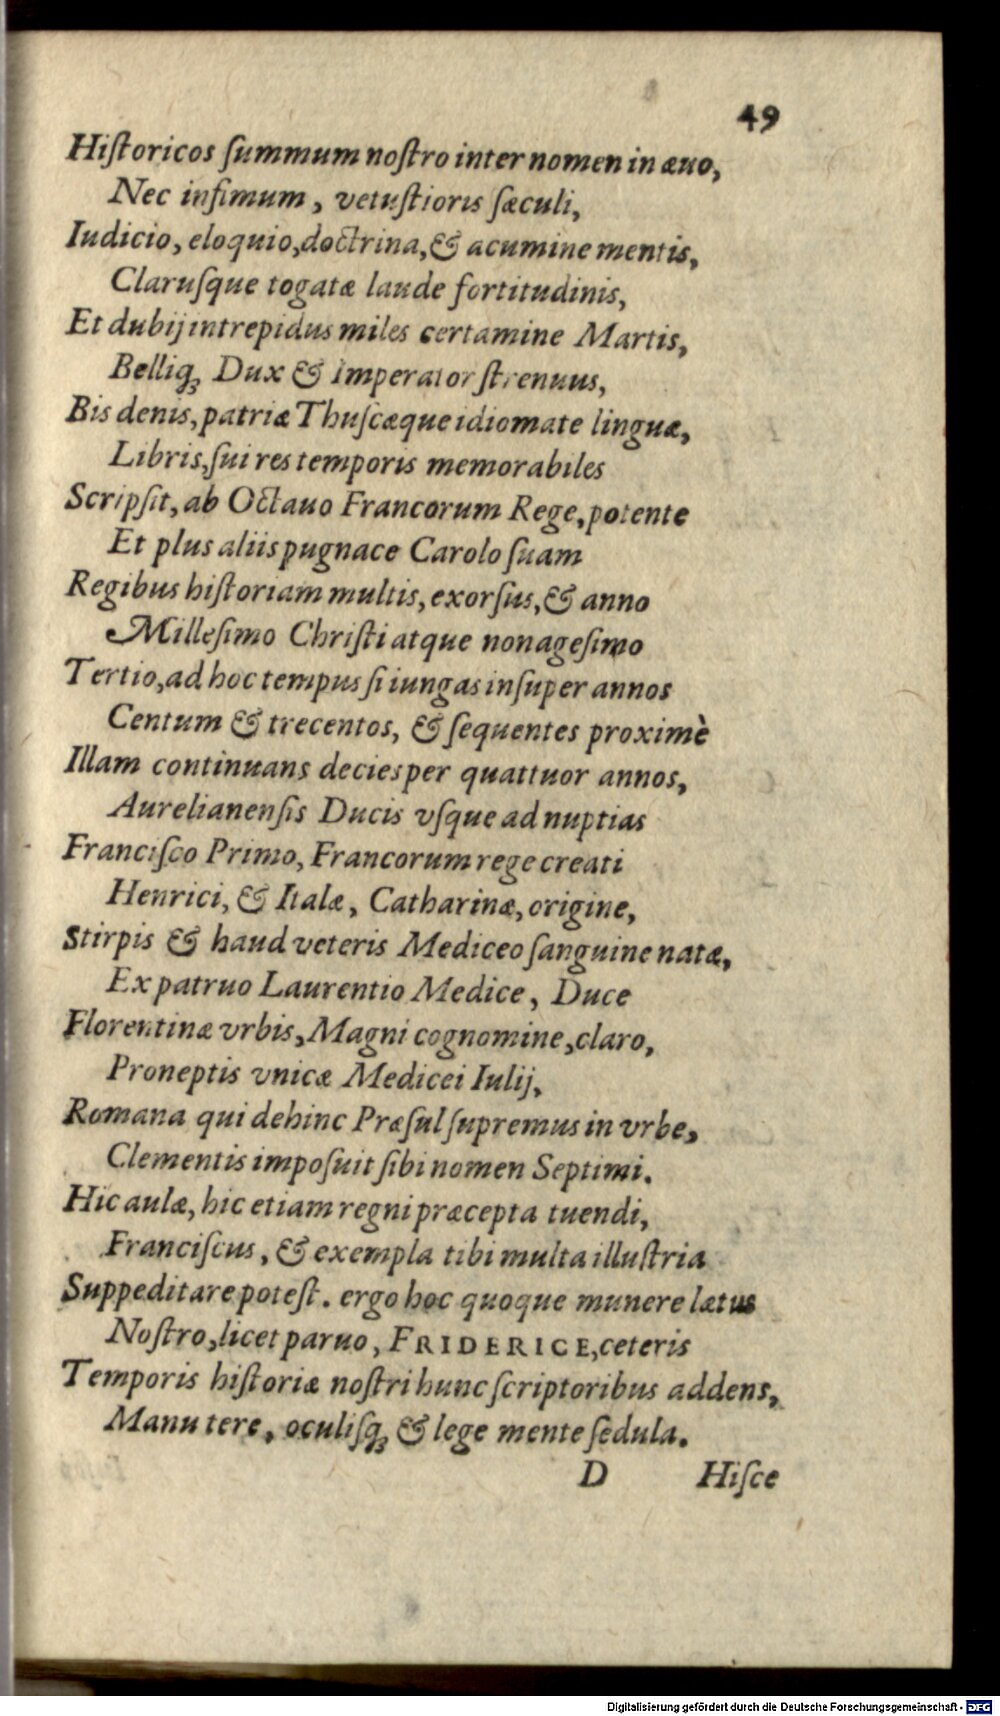 49
Hiſtoricos ſummum noſtro inter nomen in æuo,
Nec infimum, vetuſtioris ſæculi,
Iudicio, eloquio, doctrina, & acumine mentis,
Claruſque togatæ laude fortitudinis,
Et dubij intrepidus miles certamine Martis,
Belliq; Dux & Imperator ſtrenuus,
Bis denis, patriæ Thuſcæque idiomate linguæ,
Libris, ſui res temporis memorabiles
Scripſit, ab Octauo Francorum Rege, potente
Et plus aliis pugnace Carolo ſuam
Regibus hiſtoriam multis, exorſus, & anno
Milleſimo Chriſti atque nonageſimo
Tertio, ad hoc tempus ſi iungas inſuper annos
Centum & trecentos, & ſequentes proximè
Illam continuans decies per quattuor annos,
Aurelianenſis Ducis vſque ad nuptias
Franciſco Primo, Francorum rege creati
Henrici, & Italæ, Catharinæ, origine,
Stirpis & haud veteris Mediceo ſanguine natæ,
Ex patruo Laurentio Medice, Duce
Florentinæ vrbis, Magni cognomine, claro,
Proneptis vnicæ Medicei Iulij,
Romana qui dehinc Præſul ſupremus in vrbe,
Clementis impoſuit ſibi nomen Septimi.
Hic aulæ, hic etiam regni præcepta tuendi,
Franciſcus, & exempla tibi multa illuſtria
Suppeditare poteſt. ergo hoc quoque munere lætus
Noſtro, licet paruo, FRIDERICE, ceteris
Temporis hiſtoriæ noſtri hunc ſcriptoribus addens,
Manu tere, oculiſq; & lege mente ſedula.
D Hiſce
Digitalisierung gefördert durch die Deutsche Forschungsgemeinschaft - DFG